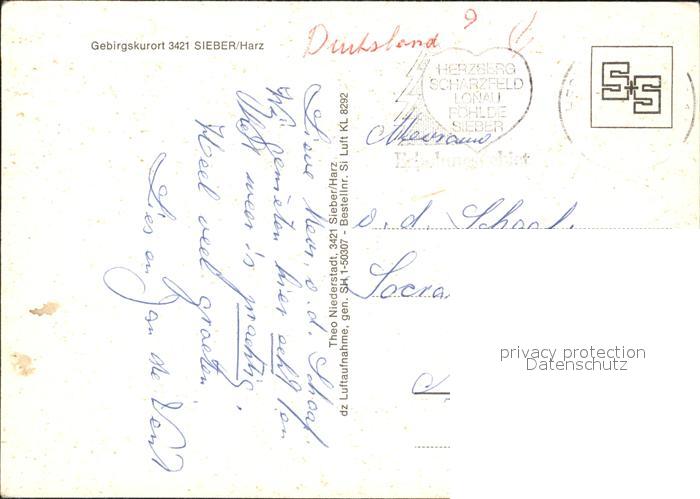 Gebirgskurort 3421 SIEBER/Harz
Duitsland
HERZBERG
SCHARZFELD
LONAU
PÖHLDE
SIEBER
Erholungsgebiet
S+S
Mevrouw
v. d. Schaaf
Lieve Mevr. v. d. Schaaf
Wij genieten hier echt en
het weer is prachtig.
Heel veel groeten
Lies en Jan de
Theo Niederstadt, 3421 Sieber/Harz
dz Luftaufnahme, gen. SH 1-50307 - Bestellnr. Si Luft KL 8292
privacy protection
Datenschutz